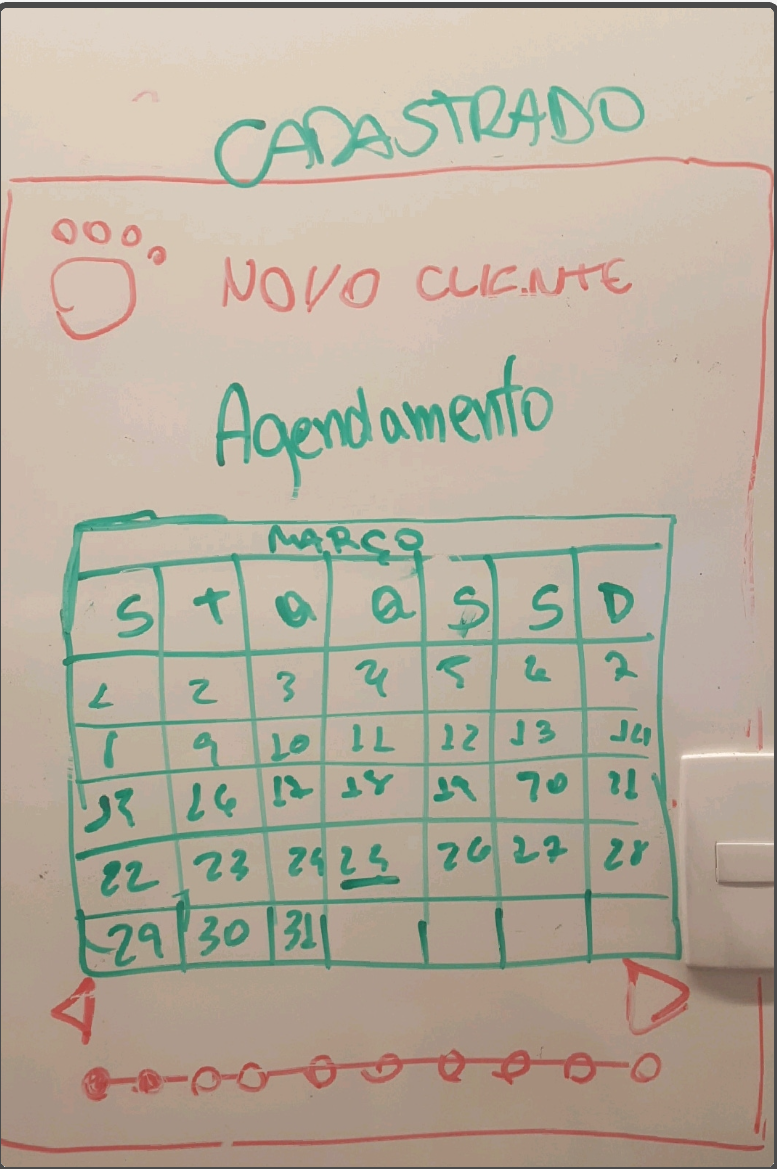 CADASTRADO
NOVO CLIENTE
Agendamento
MARÇO
S T Q Q S S D
1 2 3 4 5 6 7
8 9 10 11 12 13 14
15 16 17 18 19 20 21
22 23 24 25 26 27 28
29 30 31